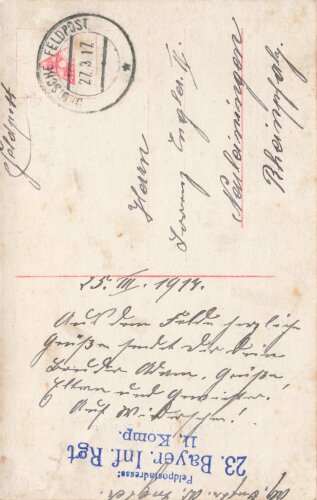 DEUTSCHE FELDPOST
27.3.17
Feldpost
Herrn
Engler II.
Neuleiningen
Rheinpfalz.
25. III. 1917.
Aus dem Felde herzliche
Grüße sendet Dir Dein
Bruder Adam. Grüße
Eltern und Gewister!
Auf Wiedersehn!
23. Bayer. Inf. Rgt
11. Komp.
Feldpostadresse:
Engler